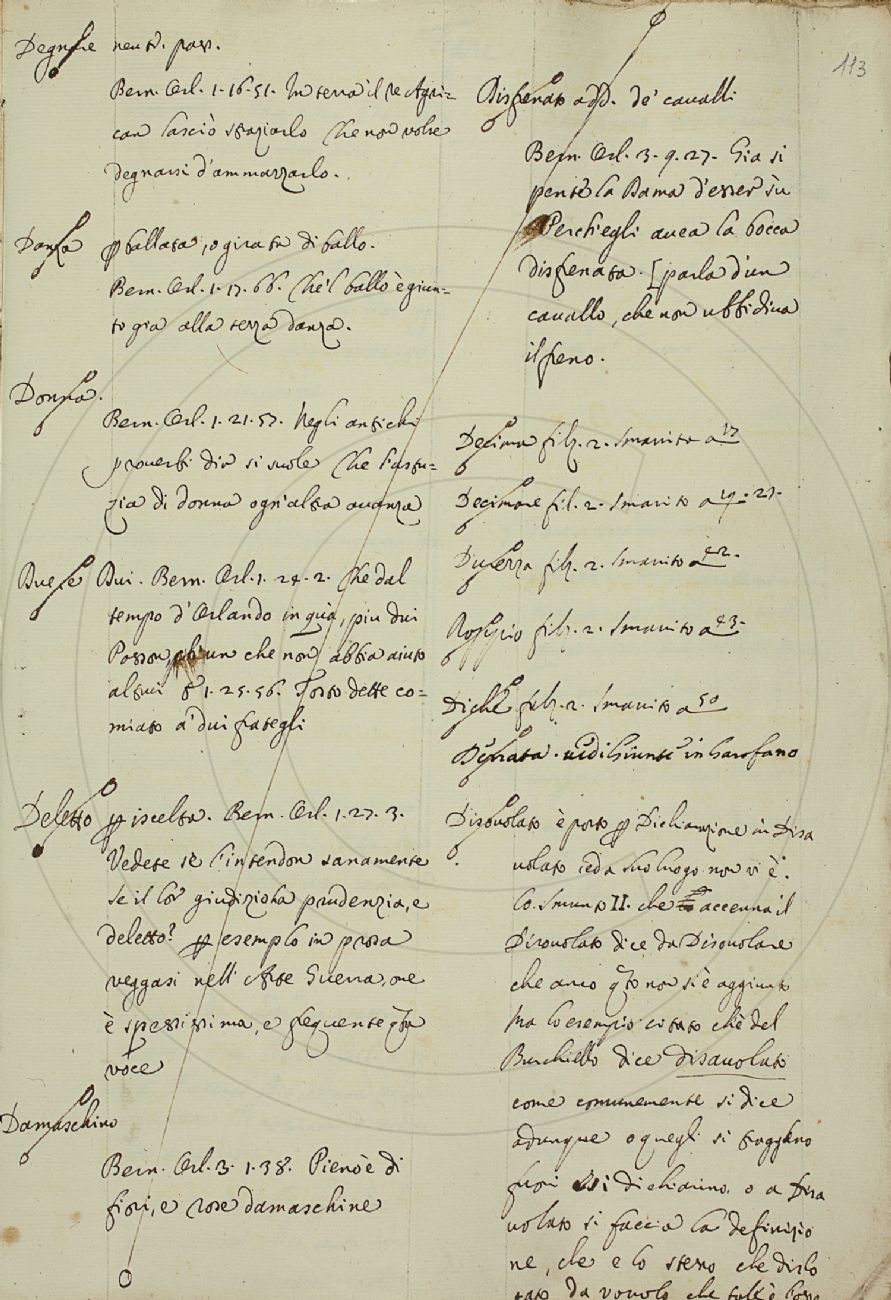 113
Degnare neutr. pass.
Bern. Orl. 1. 16. 51. In terra il re Agri=
can lasciò straziarlo Che non volse
degnarsi d'ammazzarlo.
Danza p ballata, o girata di ballo.
Bern. Orl. 1. 17. 66. Che'l ballo è giun=
to gia alla terza danza.
Donna.
Bern. Orl. 1. 21. 57. Negli antichi
proverbi dir si suole Che l'astu=
zia di donna ogn'altra avanza
Due Dui. Bern. Orl. 1. 24. 2. Che dal
tempo d'Orlando in quà, piu dui
Posson un che non abbia aiuto
altrui 1. 25. 56. Torto dette co=
miato a' dui fratelli
Deletto p iscelta. Bern. Orl. 1. 27. 3.
Vedete se l'intendon sanamente
Se il lor giudizio ha prudenzia, e
deletto? p esempio in prosa
veggasi nell' Arte Guerra, ove
è spessissima, e frequente qta
voce
Damaschino
Bern. Orl. 3. 1. 38. Pieno è di
fiori, e rose damaschine
Disfrenato add. de' cavalli
Bern. Orl. 3. 9. 27. Gia si
pentè la Dama d'esser sù
Perch'egli avea la bocca
disfrenata. [parla d'un
cavallo, che non ubbidiva
il freno.
Decima filz. 2. Smarrita a 17
Decimare fil. 2. Smarrito a 19. 27.
filz. 2. Smarrito a 42.
filz. 2. Smarrito a 43.
filz. 2. Smarrito a 50
Derrata. vedi Giunte in Garofano
Disvolato è posto p Dichiarazione in Disa
volato ed a suo luogo non vi è.
Lo Smunto II. che accenna il
Disvolato dice da Disvolare
che anco qto non si è aggiunto
Ma lo esempio citato ch'è del
Burchiello dice disavolato
come comunemente si dice
adunque o quegli si traggano
fuori e si dichiarino, o a Disa
volato si faccia la definizio
ne, che e lo stesso che dislo